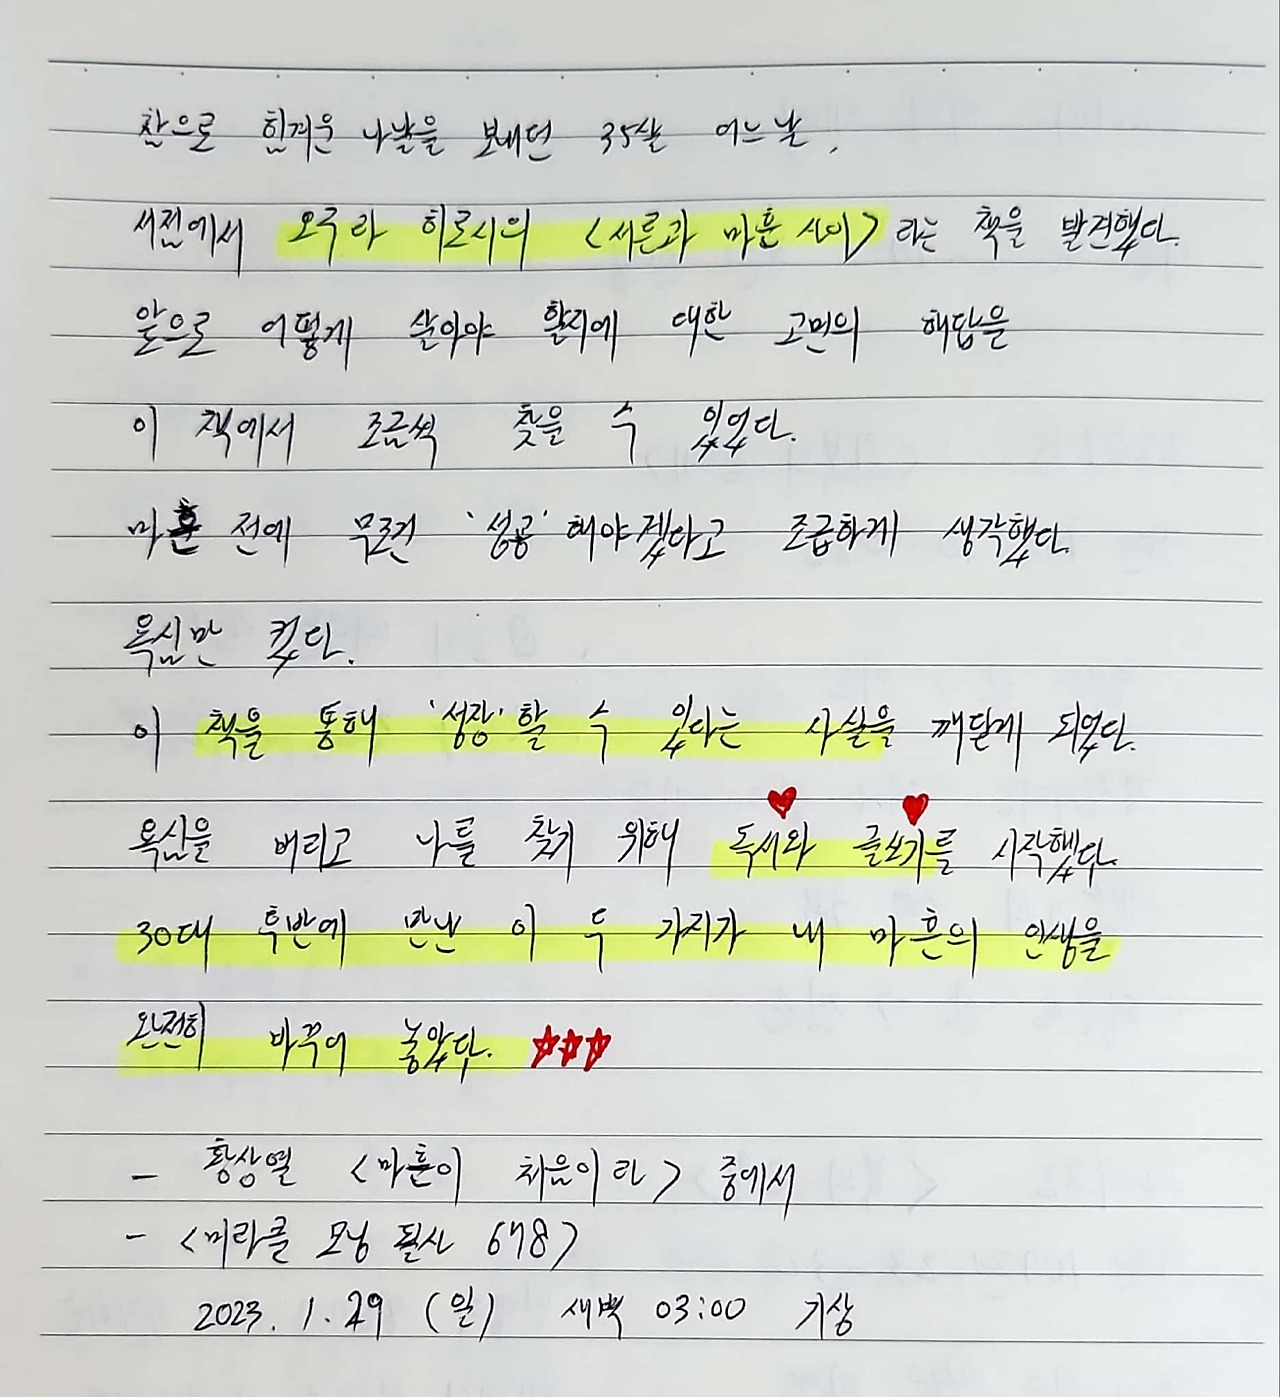 참으로 힘겨운 나날을 보내던 35살 어느날,
서점에서 오구라 히로시의 <서른과 마흔 사이> 라는 책을 발견했다.
앞으로 어떻게 살아야 할지에 대한 고민의 해답을
이 책에서 조금씩 찾을 수 있었다.
마흔 전에 무조건 '성공' 해야겠다고 조급하게 생각했다.
욕심만 컸다.
이 책을 통해 '성장' 할 수 있다는 사실을 깨닫게 되었다.
욕심을 버리고 나를 찾기 위해 독서와 글쓰기를 시작했다.
30대 후반에 만난 이 두 가지가 내 마흔의 인생을
완전히 바꾸어 놓았다.
- 황상열 <마흔이 처음이라> 중에서
- <미라클 모닝 필사 678>
2023. 1. 29 (일) 새벽 03:00 기상